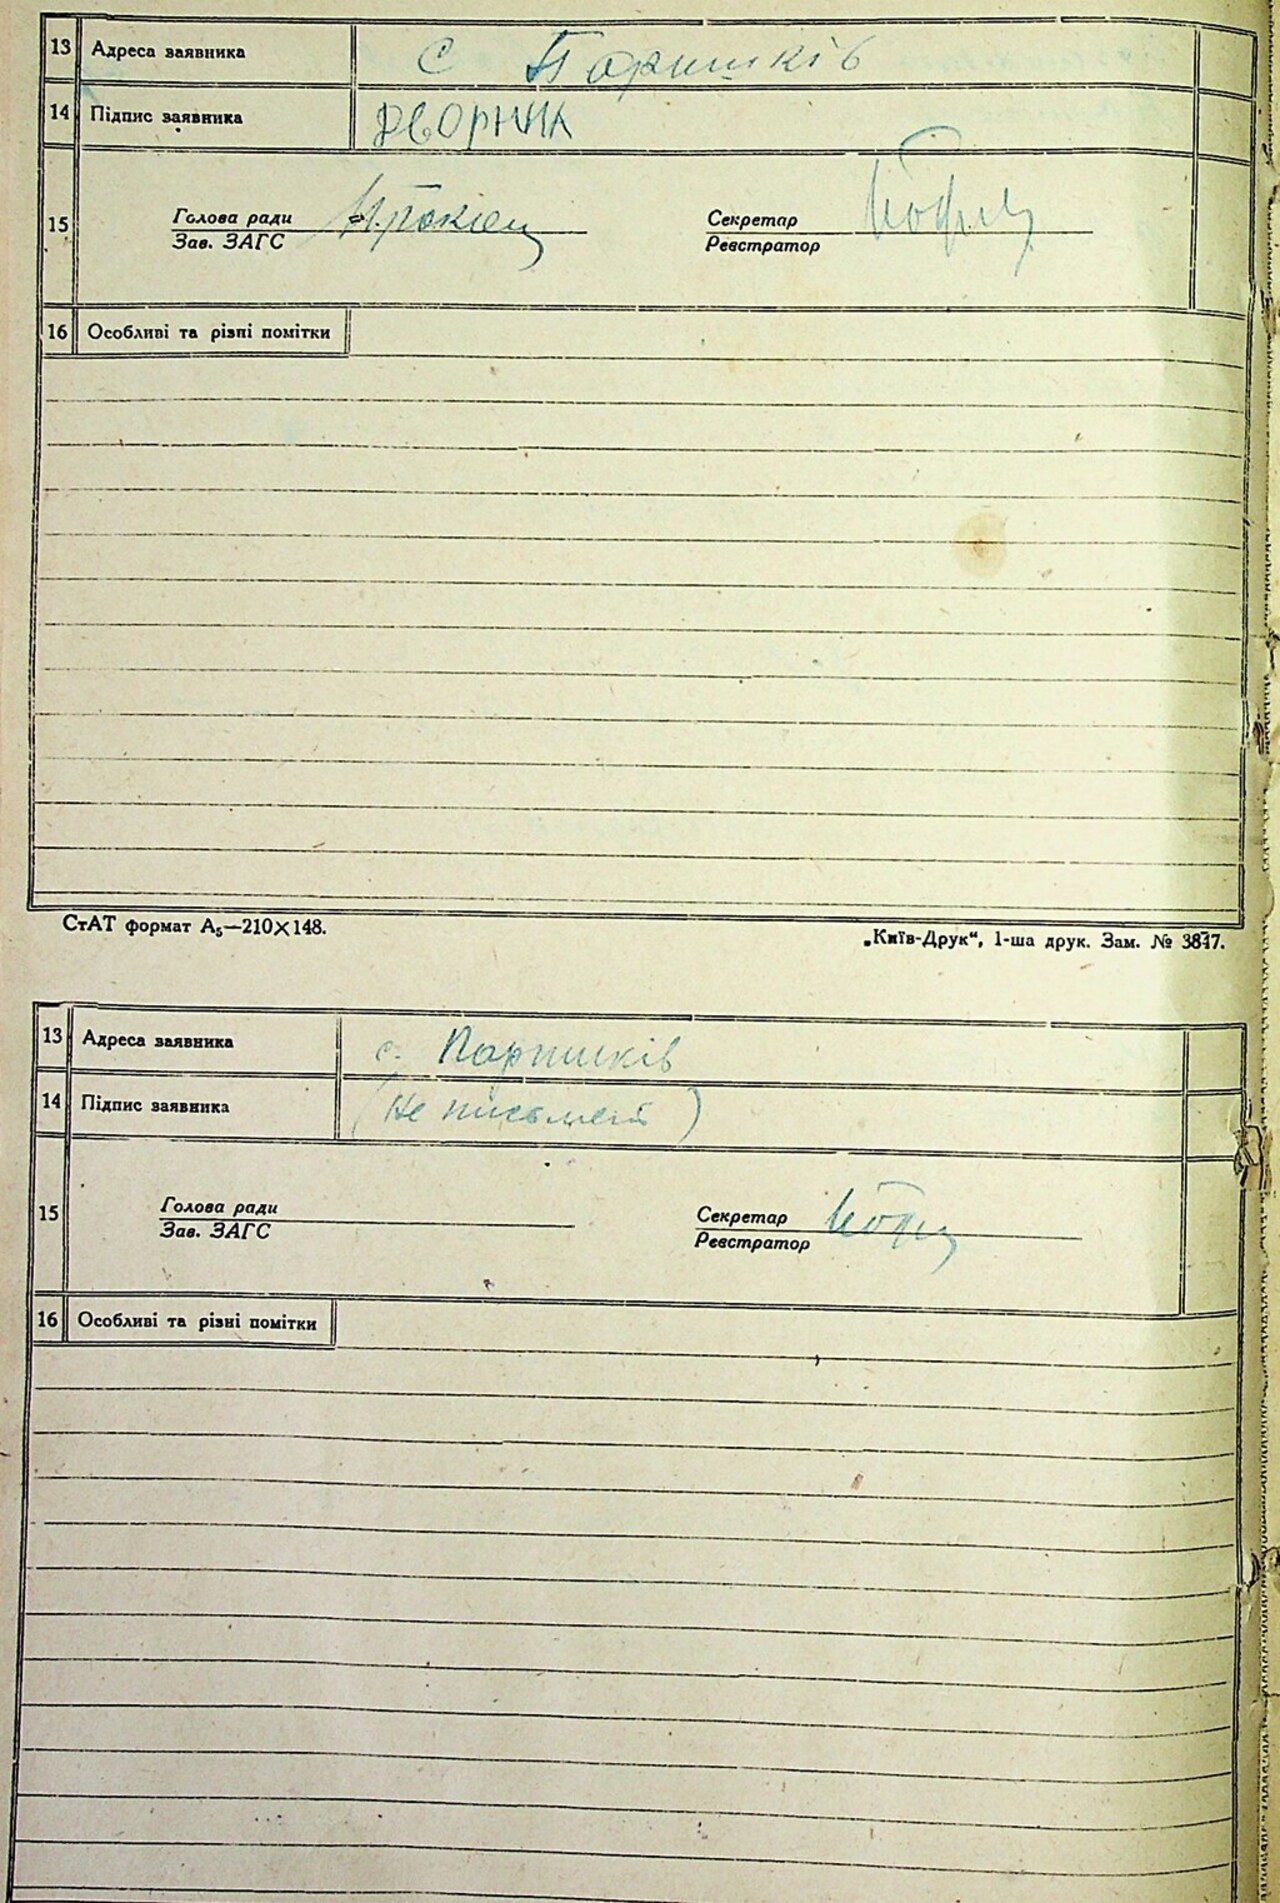 13 Адреса заявника с Паришків
14 Підпис заявника ДВОРНИК
15 Голова ради Секретар
Зав. ЗАГС Реєстратор
16 Особливі та різні помітки
СтАТ формат А₅—210×148.
„Київ-Друк“, 1-ша друк. Зам. № 3817.
13 Адреса заявника с. Паришків
14 Підпис заявника (Не письмен)
15 Голова ради Секретар
Зав. ЗАГС Реєстратор
16 Особливі та різні помітки